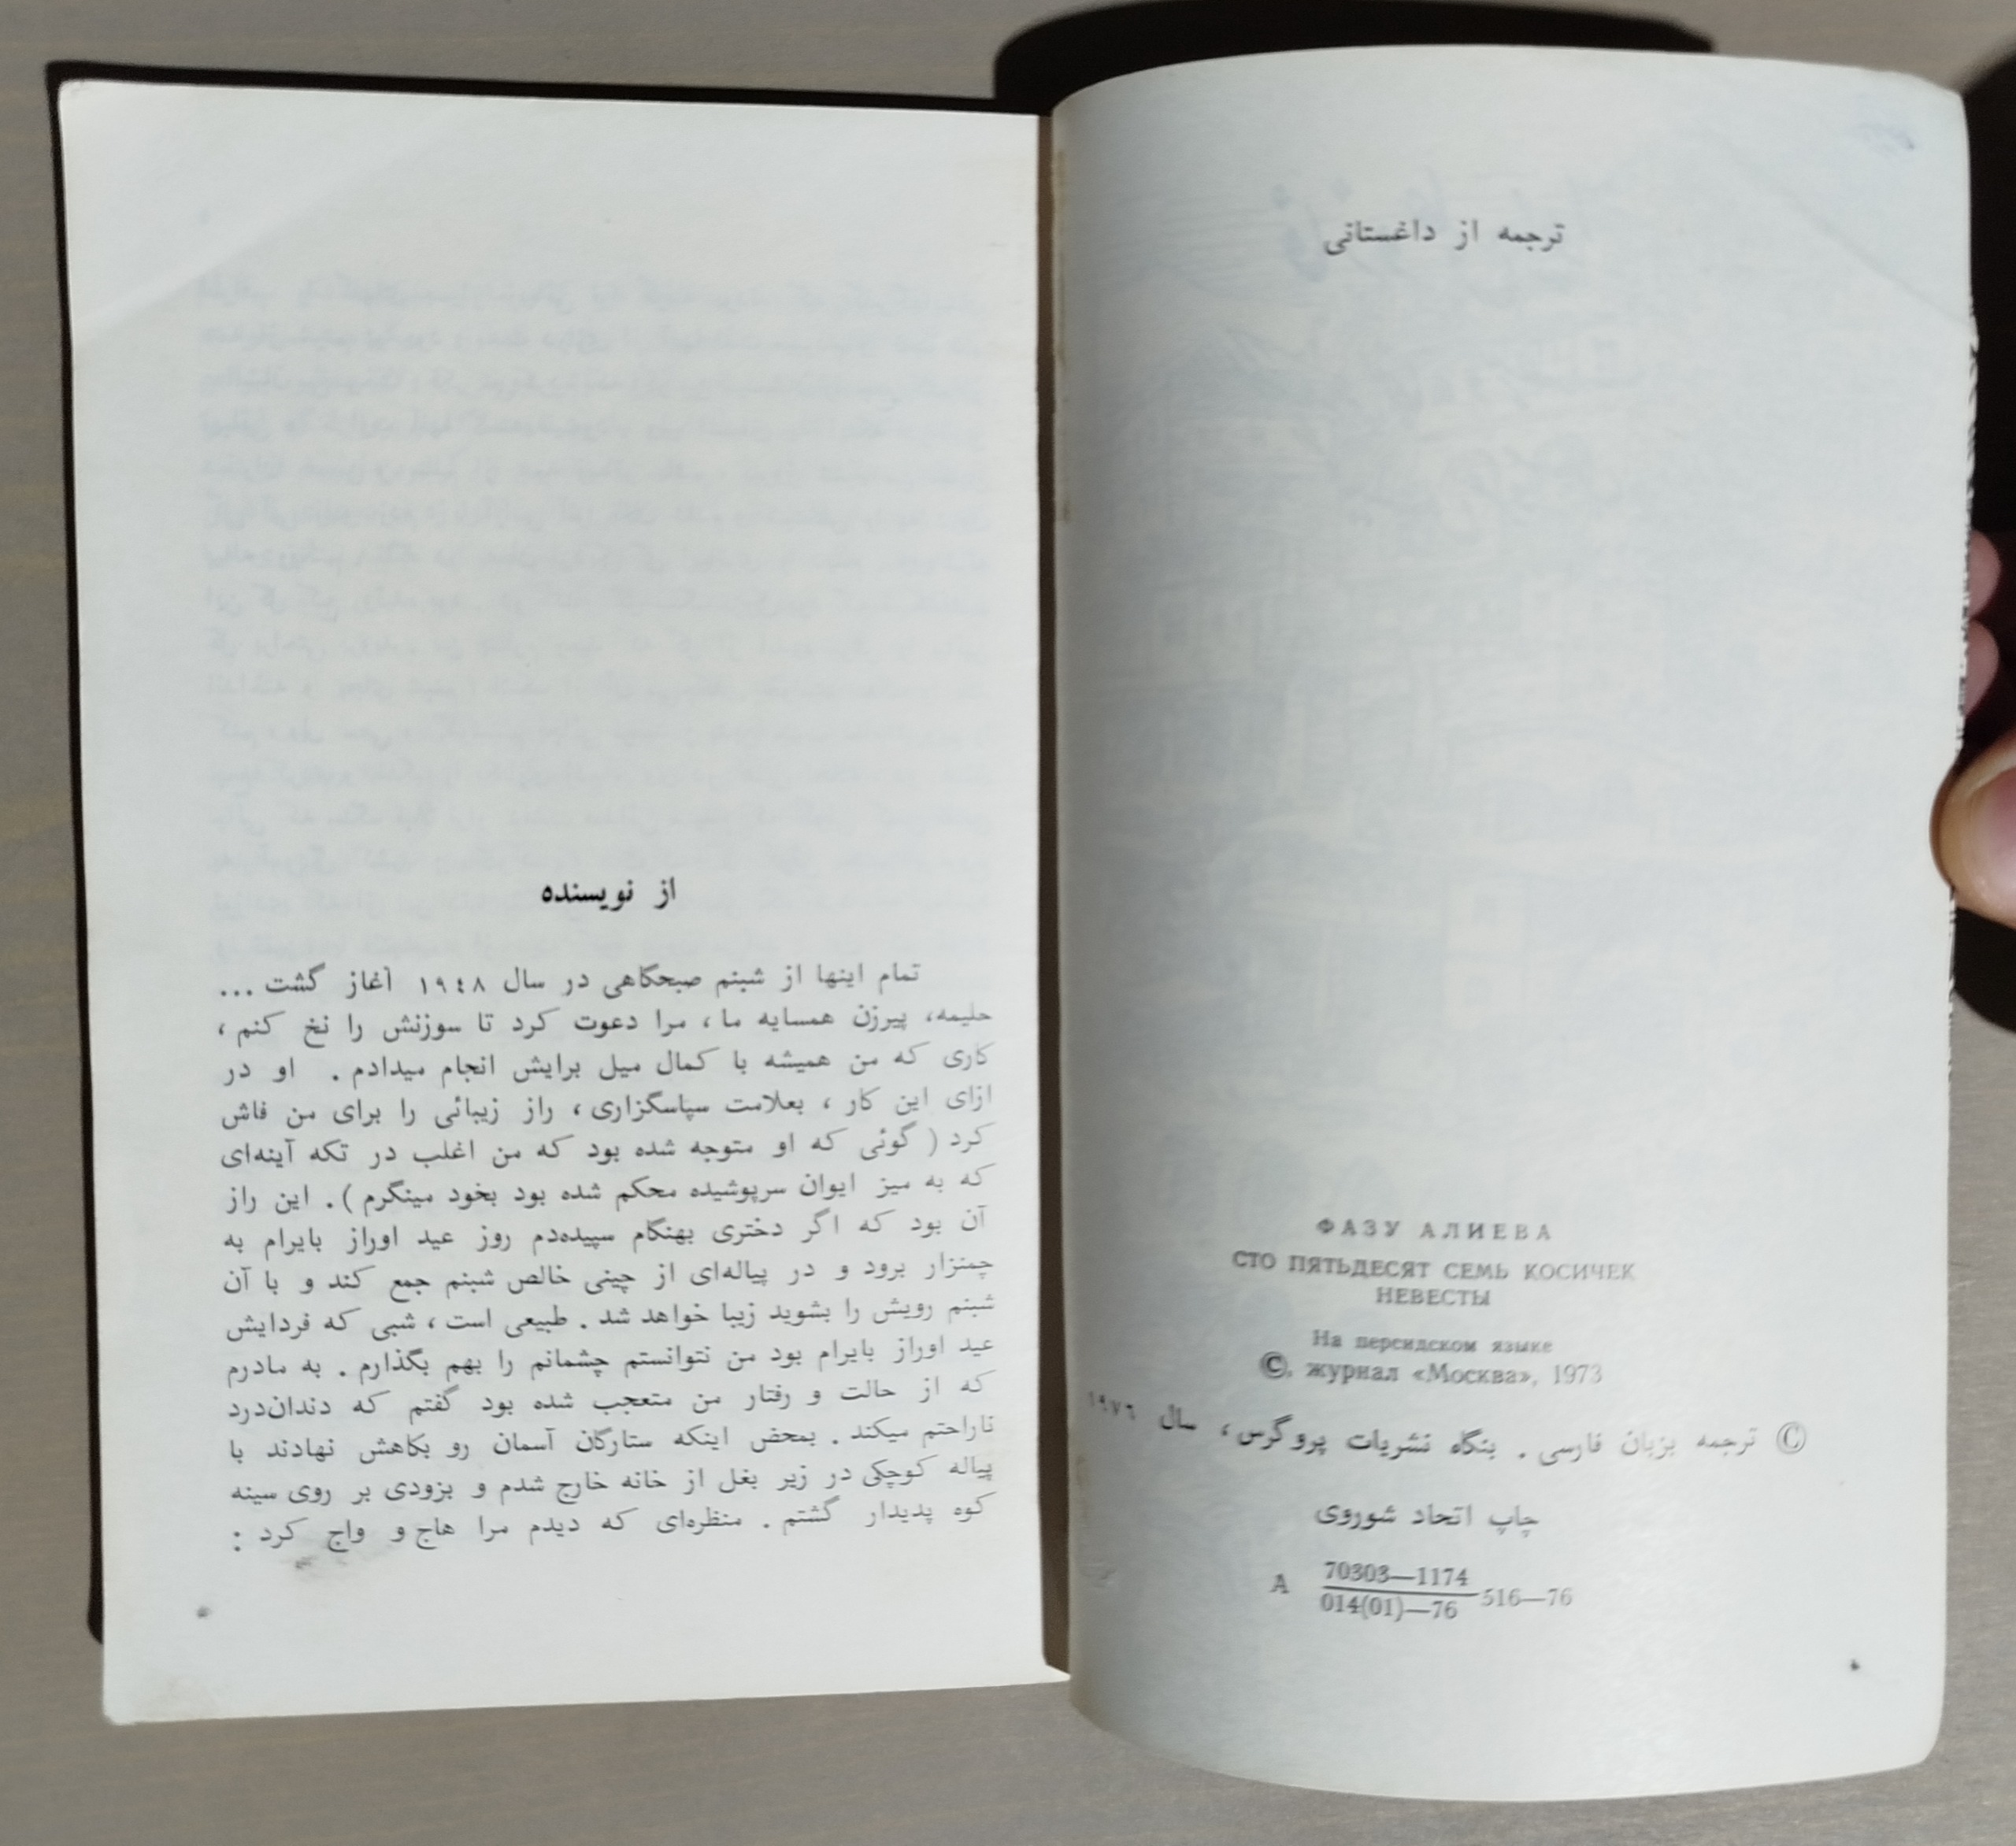 ترجمه از داغستانی
ФАЗУ АЛИЕВА
СТО ПЯТЬДЕСЯТ СЕМЬ КОСИЧЕК
НЕВЕСТЫ
На персидском языке
©, журнал «Москва», 1973
© ترجمه بزبان فارسی . بنگاه نشریات پروگرس، سال ۱۹۷٦
چاپ اتحاد شوروی
А 70303—1174
014(01)—76 516—76
از نویسنده
تمام اینها از شبنم صبحگاهی در سال ۱۹٤۸ آغاز گشت ...
حلیمه، پیرزن همسایه ما، مرا دعوت کرد تا سوزنش را نخ کنم،
کاری که من همیشه با کمال میل برایش انجام میدادم . او در
ازای این کار ، بعلامت سپاسگزاری، راز زیبائی را برای من فاش
کرد ( گوئی که او متوجه شده بود که من اغلب در تکه آینه‌ای
که به میز ایوان سرپوشیده محکم شده بود بخود مینگرم). این راز
آن بود که اگر دختری بهنگام سپیده‌دم روز عید اوراز بایرام به
چمنزار برود و در پیاله‌ای از چینی خالص شبنم جمع کند و با آن
شبنم رویش را بشوید زیبا خواهد شد . طبیعی است، شبی که فردایش
عید اوراز بایرام بود من نتوانستم چشمانم را بهم بگذارم . به مادرم
که از حالت و رفتار من متعجب شده بود گفتم که دندان‌درد
ناراحتم میکند . بمحض اینکه ستارگان آسمان رو بکاهش نهادند با
پیاله کوچکی در زیر بغل از خانه خارج شدم و بزودی بر روی سینه
کوه پدیدار گشتم . منظره‌ای که دیدم مرا هاج و واج کرد :